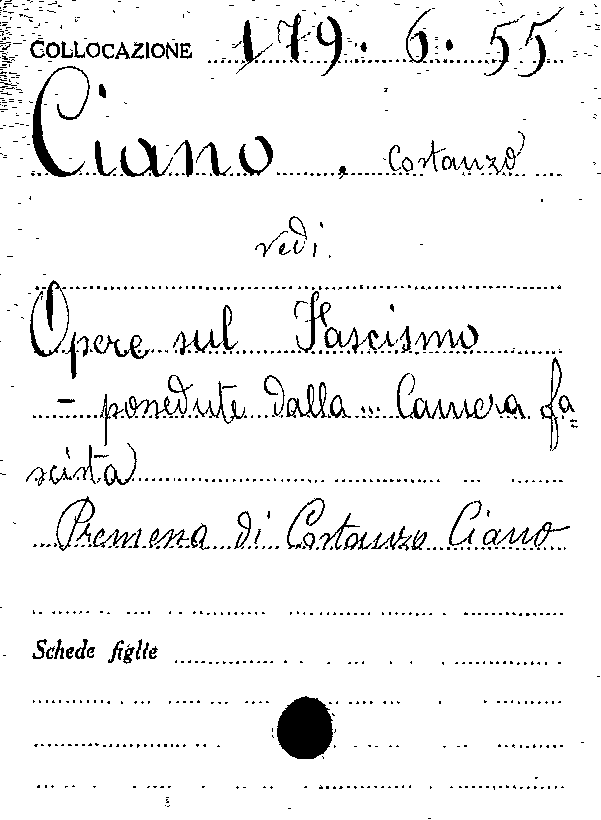 COLLOCAZIONE 179. 6. 55
Ciano, Costanzo
vedi.
Opere sul Fascismo
- ponedute dalla... Camera fa=
scista
Premessa di Costanzo Ciano
Schede figlie